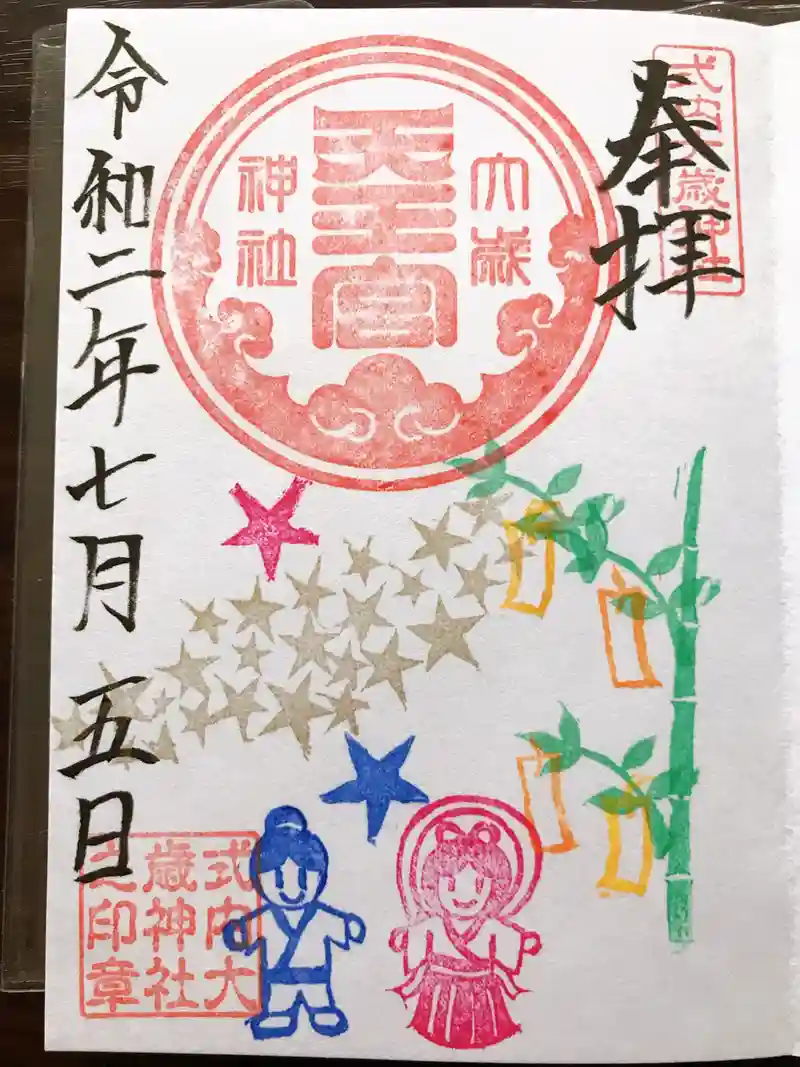 式内大歳神社
奉拝
大歳
天王宮
神社
令和二年七月五日
式内大
歳神社
之印章